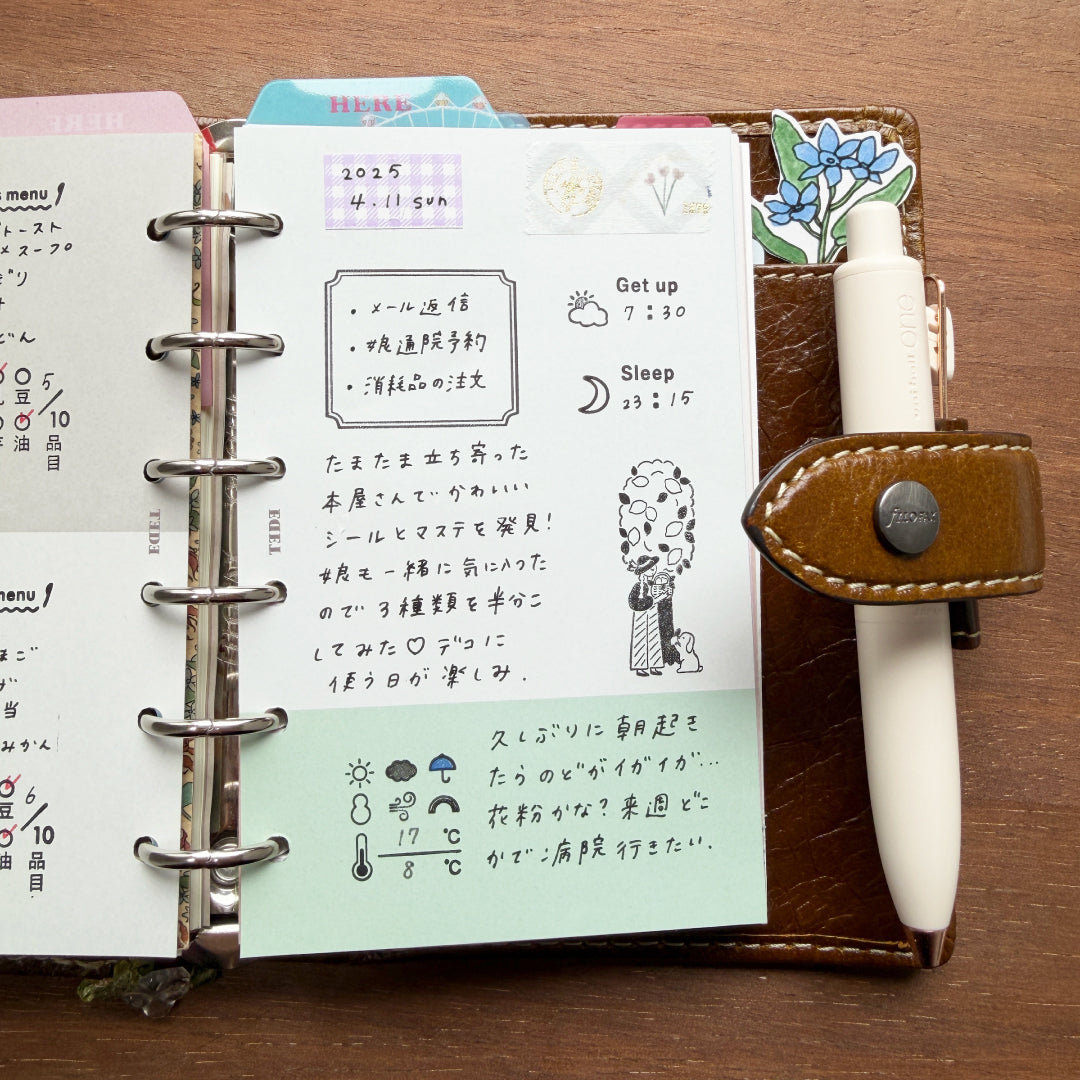 HERE
menu
トースト
スープ
5/10
豆
油
品目
menu
たまご
みかん
豆
6/10
油
品目
HERE
2025
4.11 sun
・メール返信
・娘通院予約
・消耗品の注文
Get up
7:30
Sleep
23:15
たまたま立ち寄った
本屋さんでかわいい
シールとマステを発見!
娘も一緒に気に入った
ので3種類を半分こ
してみた♡デコに
使う日が楽しみ.
17℃
8℃
久しぶりに朝起き
たらのどがイガイガ...
花粉かな?来週どこ
かで病院行きたい.
one